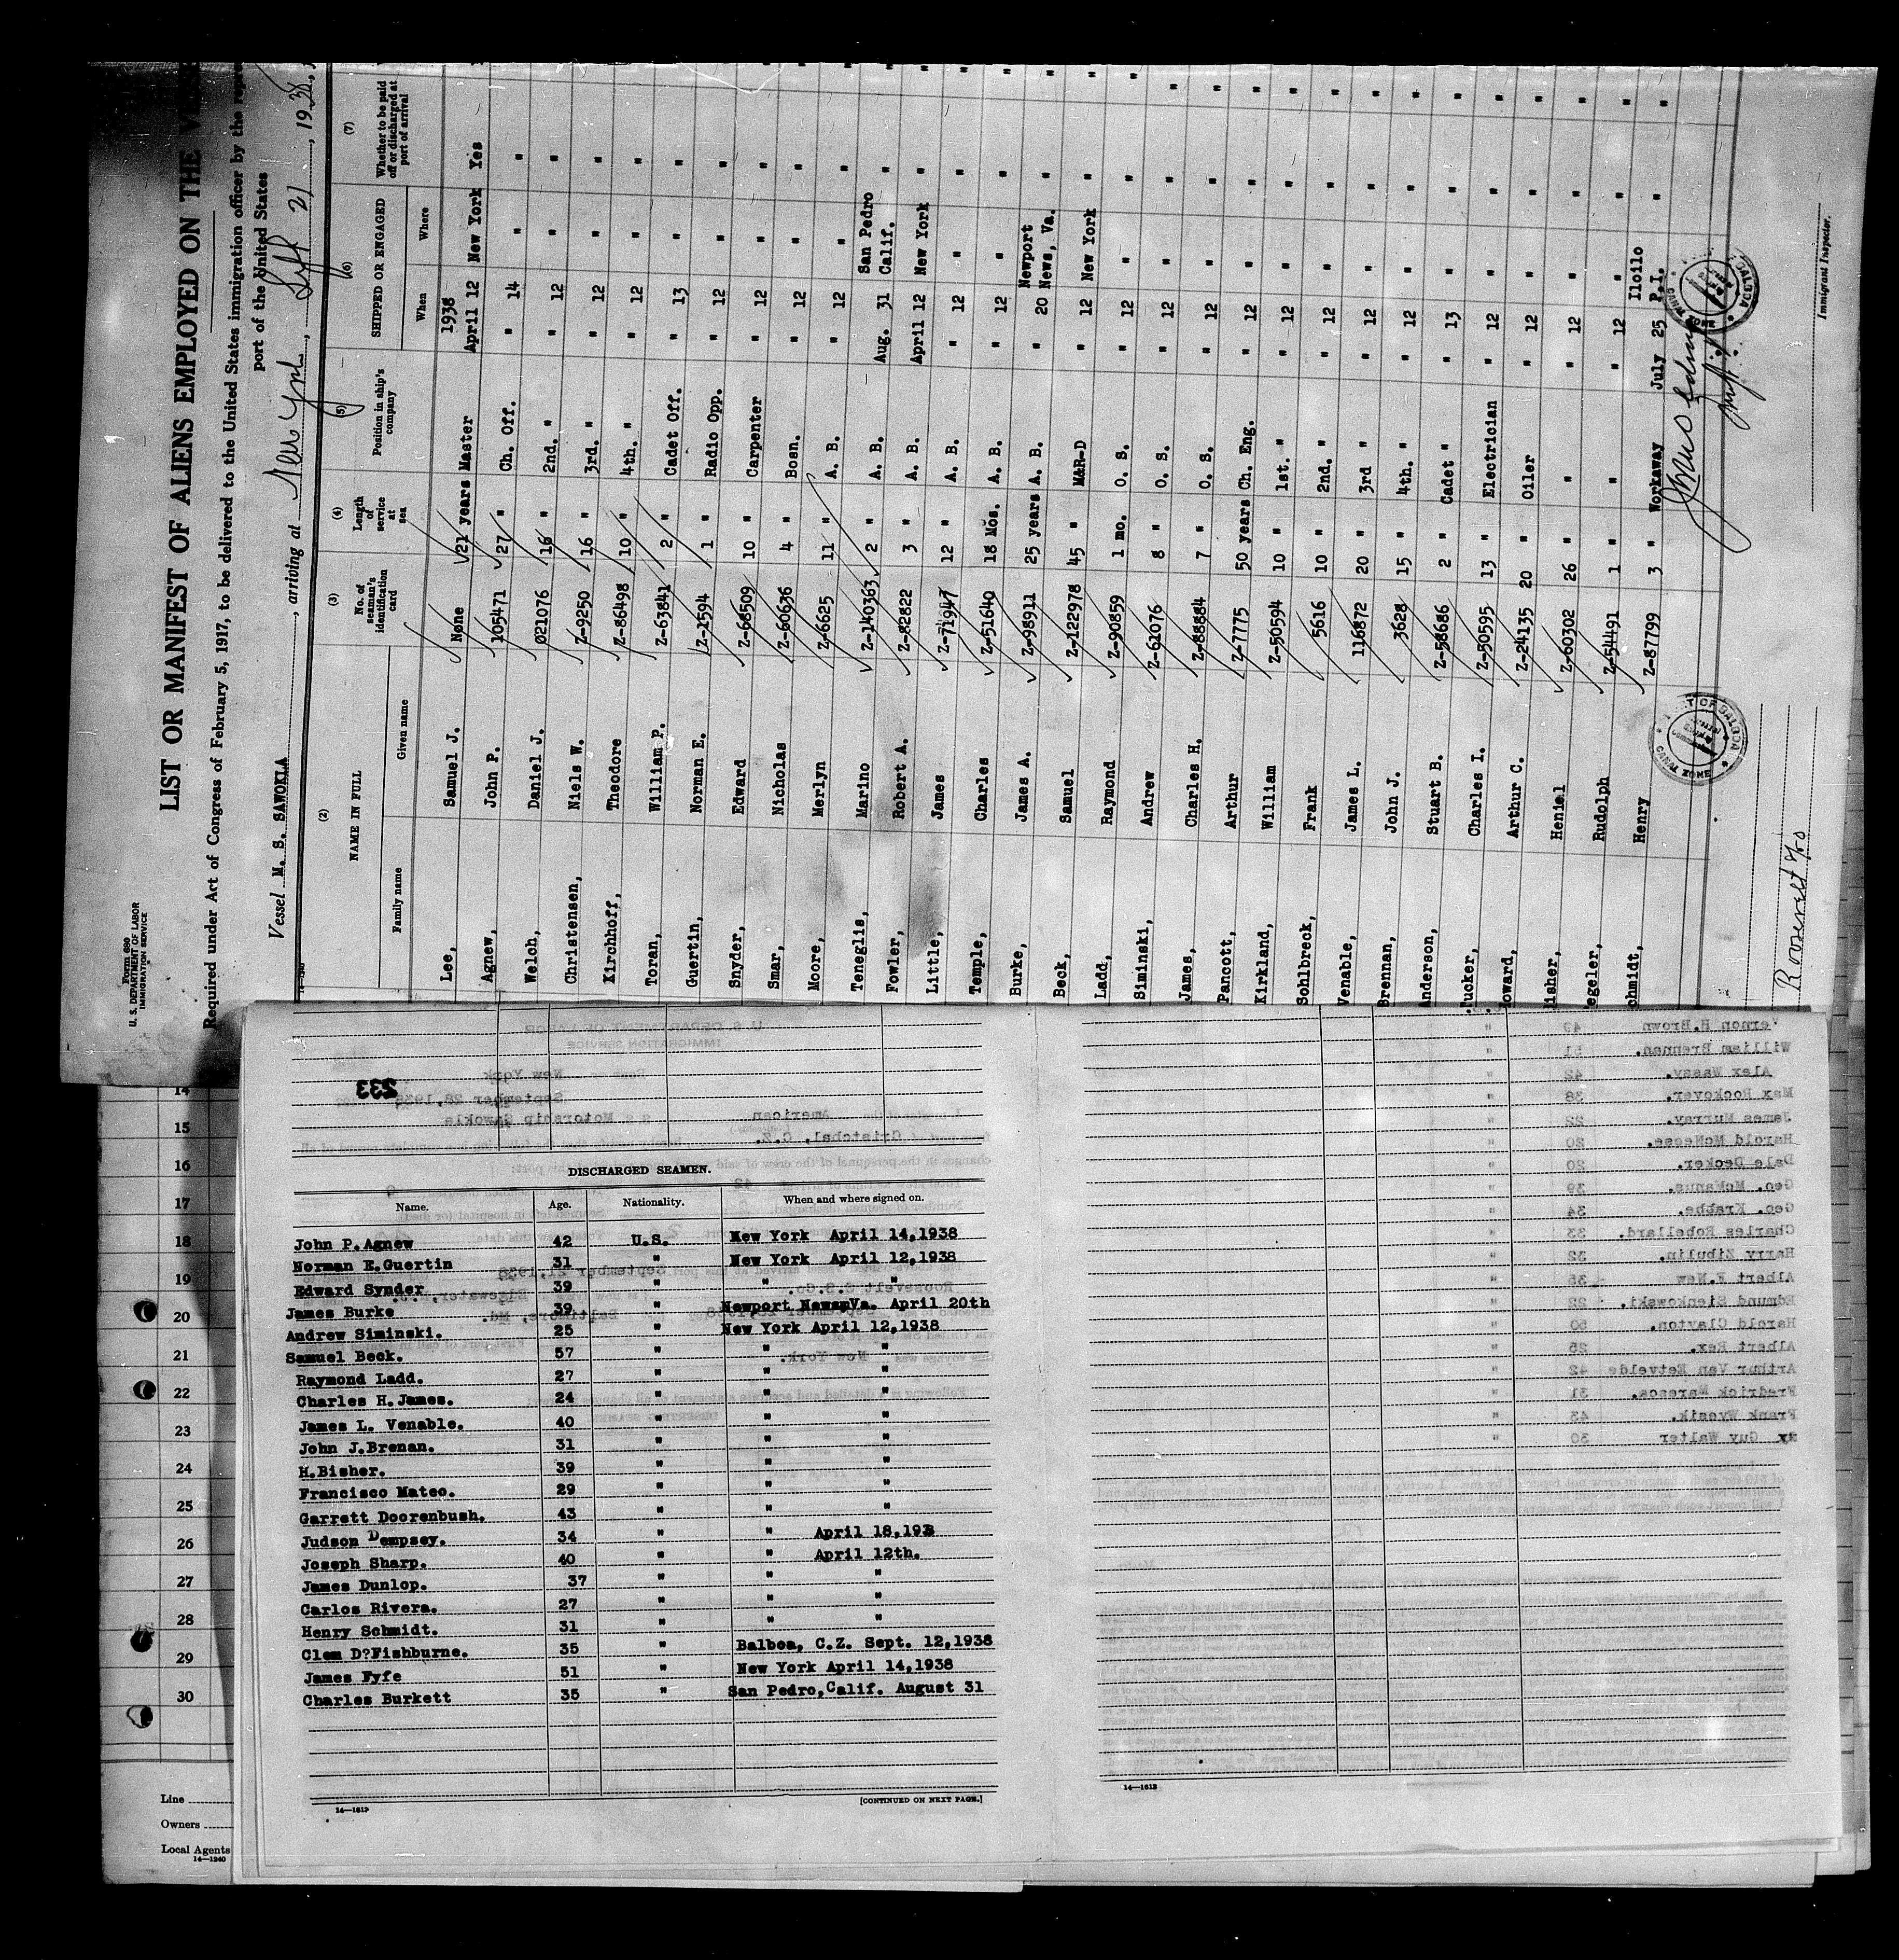 Form 680
U. S. DEPARTMENT OF LABOR
IMMIGRATION SERVICE
LIST OR MANIFEST OF ALIENS EMPLOYED ON THE
Required under Act of Congress of February 5, 1917, to be delivered to the United States immigration officer by the
port of the United States
Vessel M. S. SAWOKLA, arriving at New York, Sept 21, 1938,
(2) (3) (4) (5) (6) (7)
NAME IN FULL No. of seaman's identification card Length of service at sea Position in ship's company SHIPPED OR ENGAGED Whether to be paid off or discharged at port of arrival
Family name Given name When Where
1938
Lee, Samuel J. None 21 years Master April 12 New York Yes
Agnew, John P. 105471 27 " Ch. Off. " 14 " "
Welch, Daniel J. 021076 16 " 2nd. " " 12 " "
Christensen, Niels W. Z-9250 16 " 3rd. " " 12 " "
Kirchhoff, Theodore Z-86498 10 " 4th. " " 12 " "
Toran, William P. Z-63841 2 " Cadet Off. " 13 " "
Guertin, Norman E. Z-1594 1 " Radio Opp. " 12 " "
Snyder, Edward Z-68509 10 " Carpenter " 12 " "
Smar, Nicholas Z-60636 4 " Bosn. " 12 " "
Moore, Merlyn Z-6625 11 " A. B. " 12 " "
Teneglis, Marino Z-140363 2 " A. B. Aug. 31 San Pedro Calif. "
Fowler, Robert A. Z-82822 3 " A. B. April 12 New York "
Little, James Z-71947 12 " A. B. " 12 " "
Temple, Charles Z-51640 18 Mos. A. B. " 12 " "
Burke, James A. Z-98911 25 years A. B. " 20 Newport News, Va. "
Beck, Samuel Z-122978 45 " M&R-D " 12 New York "
Ladd, Raymond Z-90859 1 mo. O. S. " 12 " "
Siminski, Andrew Z-61076 8 " O. S. " 12 " "
James, Charles H. Z-88884 7 " O. S. " 12 " "
Pancott, Arthur Z-7775 50 years Ch. Eng. " 12 " "
Kirkland, William Z-50594 10 " 1st. " " 12 " "
Sohlbreck, Frank 5616 10 " 2nd. " " 12 " "
Venable, James L. 116872 20 " 3rd " " 12 " "
Brennan, John J. 3628 15 " 4th. " " 12 " "
Anderson, Stuart B. Z-58686 2 " Cadet " " 13 " "
Tucker, Charles I. Z-50595 13 " Electrician " 12 " "
oward, Arthur C. Z-24135 20 " Oiler " 12 " "
isher, Heniel Z-60302 26 " " " 12 " "
egeler, Rudolph Z-54491 1 " " " 12 " "
chmidt, Henry Z-87799 3 " Workaway July 25 Iloilo P.I. "
OF BALBOA
CANAL ZONE
BALBOA
CANAL ZONE
Immigrant Inspector.
Roosevelt
14
15
16
17
18
19
20
21
22
23
24
25
26
27
28
29
30
Line
Owners
Local Agents
14—1240
233
DISCHARGED SEAMEN.
Name. Age. Nationality. When and where signed on.
John P. Agnew 42 U.S. New York April 14,1938
Norman E.Guertin 31 " New York April 12,1938
Edward Synder 39 " " "
James Burke 39 " Newport NewsmVa. April 20th
Andrew Siminski. 25 " New York April 12,1938
Samuel Beck. 57 " " "
Raymond Ladd. 27 " " "
Charles H. James. 24 " " "
James L. Venable. 40 " " "
John J.Brenan. 31 " " "
H.Bisher. 39 " " "
Francisco Mateo. 29 " " "
Garrett Doorenbush. 43 " " "
Judson Dempsey. 34 " " April 18,193
Joseph Sharp. 40 " " April 12th.
James Dunlop. 37 " " "
Carlos Rivera. 27 " " "
Henry Schmidt. 31 " " "
Clem D?Fishburne. 35 " Balboa, C.Z. Sept. 12,1938
James Fyfe 51 " New York April 14,1938
Charles Burkett 35 " San Pedro,Calif. August 31
14—1612
[CONTINUED ON NEXT PAGE.]
U. S. DEPARTMENT OF LABOR
IMMIGRATION SERVICE
New York
September 28,1938
American S.S. Motorship Sawokla
Cristobal, C.Z.
September 21,1938
Roosevelt S.S.Co.
Edgewater,
Baltimore, Md.
New York.
Vernon H.Brown 49 "
William Brennan. 51 "
Alex Wassy. 42 "
Max Rockover. 38 "
James Murray. 22 "
Harold McNeese. 20 "
Dale Decker. 20 "
Geo. McManus. 39 "
Geo. Krabbe. 34 "
Charles Robellard. 33 "
Harry Zibulin. 32 "
Albert F.New 35 "
Edmund Sienkowski. 22 "
Harold Clayton. 50 "
Albert Rex. 25 "
Arthur Van Eetvelde 42 "
Fredrick Maresca. 31 "
Frank Wyesik. 43 "
Guy Walter 30 "
14—1612